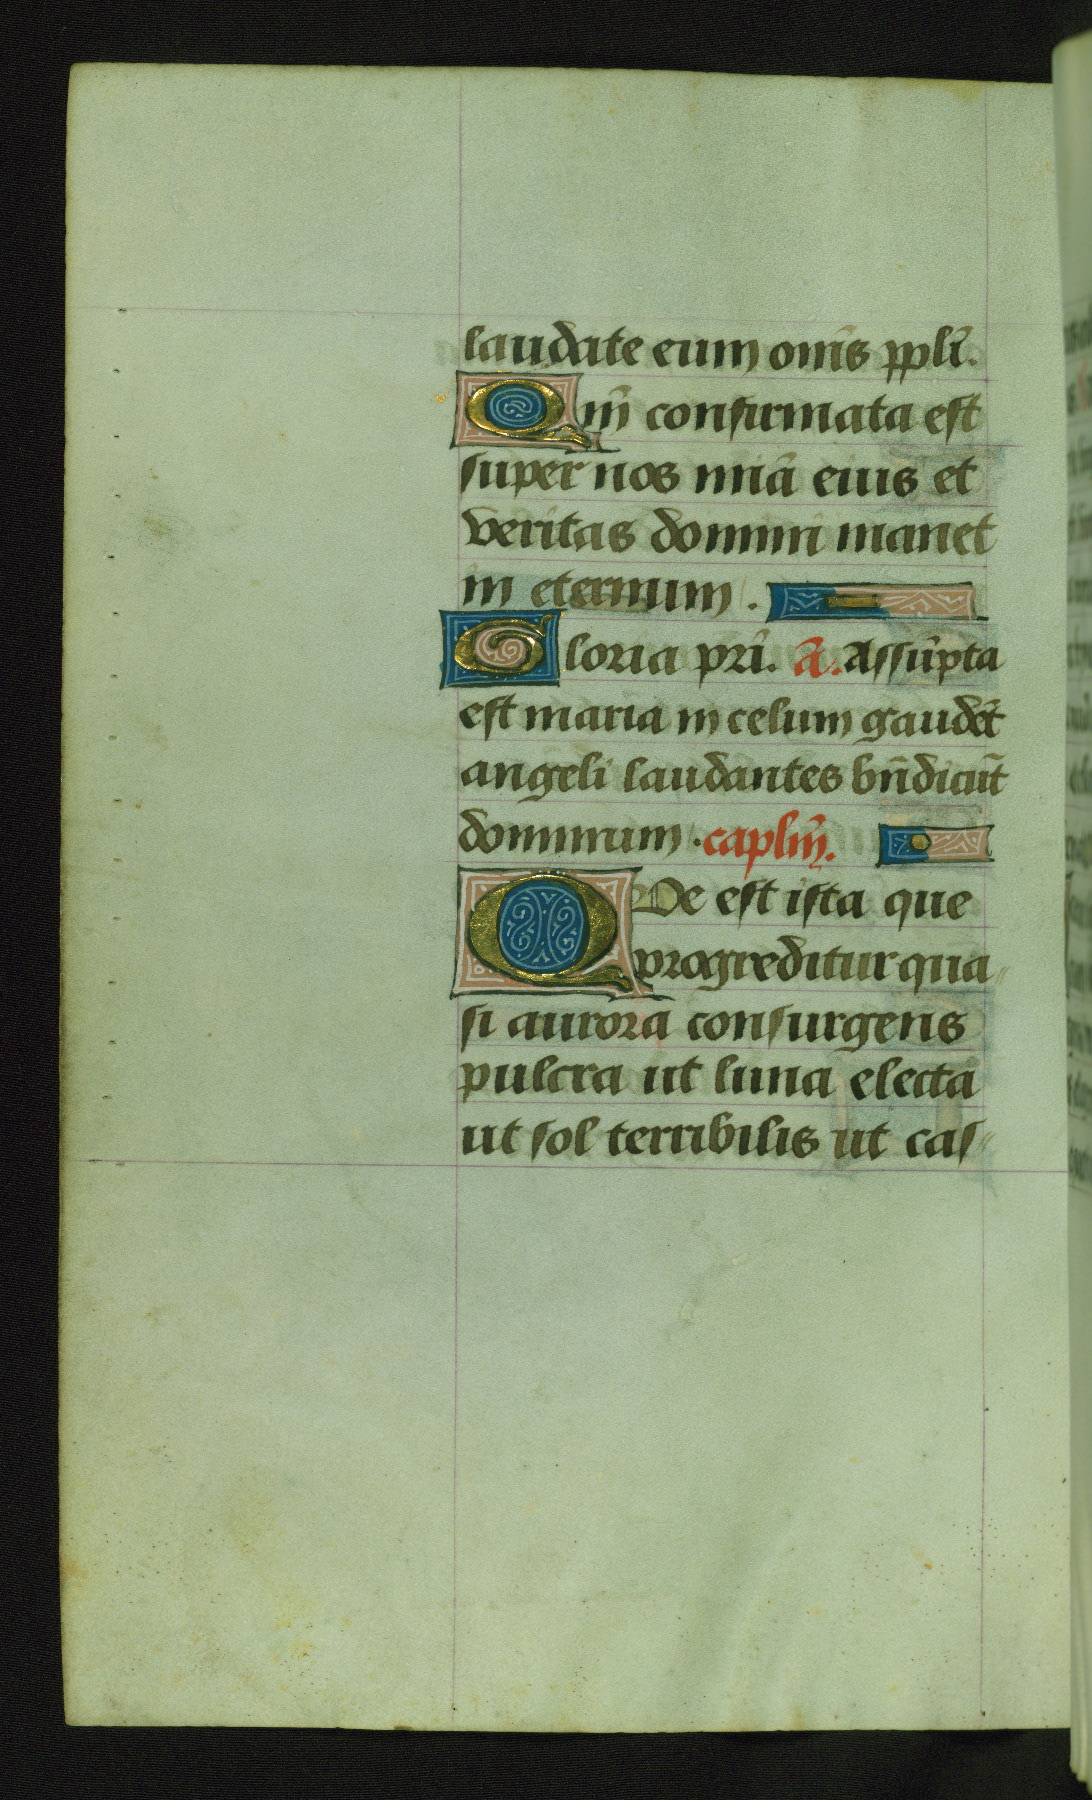 laudate eum om̄s pp̄li.
Qm̄ confirmata est
super nos mīa eius et
veritas domini manet
in eternum.
Gloria pr̄i. a. Assūpta
est maria in celum gaudēt
angeli laudantes bn̄dicūt
dominum. caplm̄.
Que est ista que
progreditur qua
si aurora consurgens
pulcra ut luna electa
ut sol terribilis ut cas